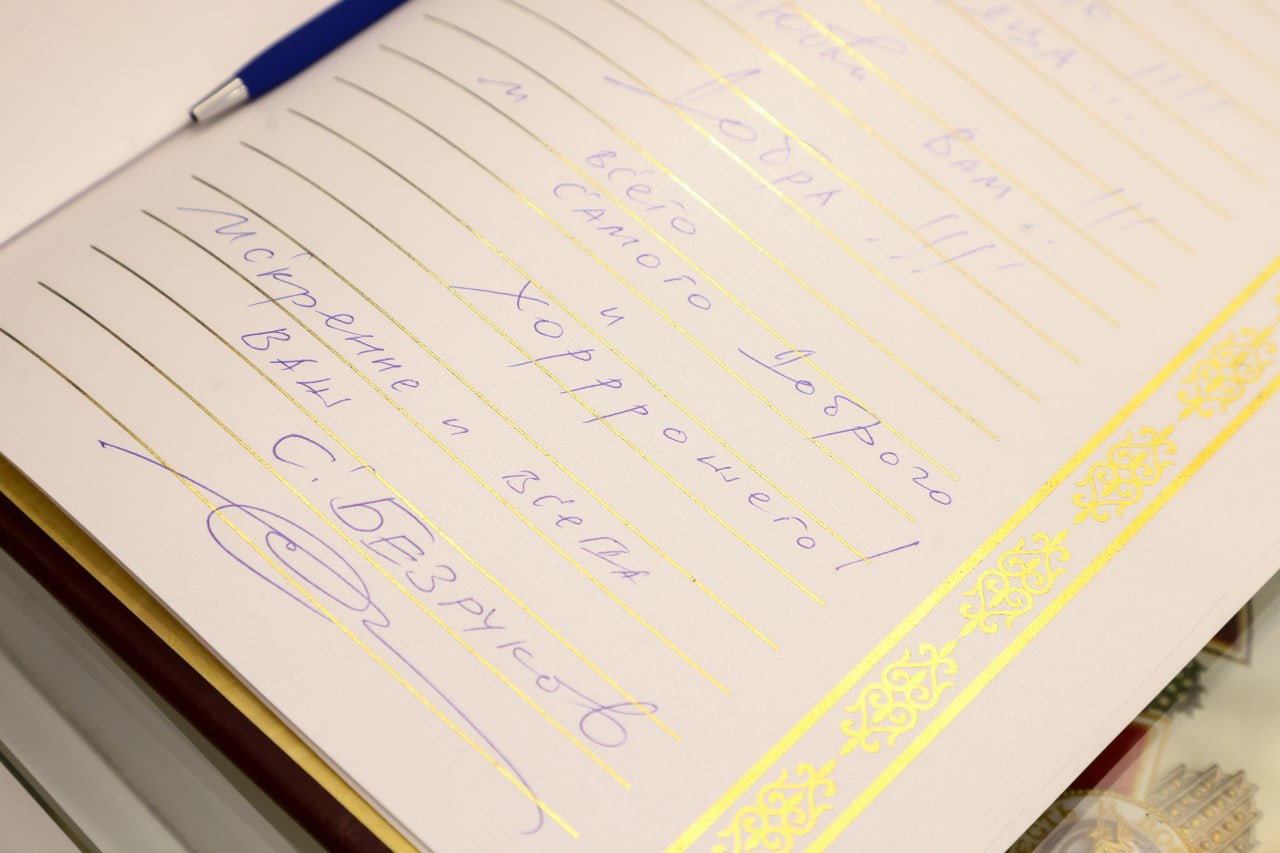 Любви Вам !!!
и Добра !!!
всего
самого Доброго
и
Хорррошего!
Искренне и всегда
ваш
С. БЕЗРУКОВ